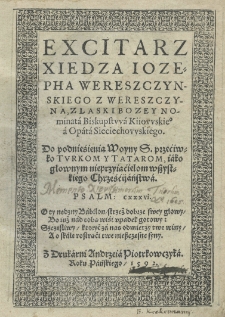 EXCITARZ
XIEDZA IOZE-
PHA WERESZCZYN-
SKIEGO Z WERESZCZY-
NA, Z LASKI BOZEY NO-
minata Biskupstwa Kiiowskieº
á Opátá Sieciechowskiego.
Do podnieśienia Woyny S. przećiw-
ko TVRKOM Y TATAROM, iáko
głownym nieprzyiaćielom wszyst-
kiego Chrześćijáństwá.
PSALM: CXXXVI.
O ty nędzny Babilon strzeż dobrze swey głowy,
Bo iuż nád tobą wiśi vpadek gotowy:
Szczęśliwy, ktory zá nas odmierzy twe winy,
A o skáłę roztrąći twe nieszczęsne syny.
Z Drukárni Andrzeiá Piotrkowczyká.
Roku Páńskiego, 1592.